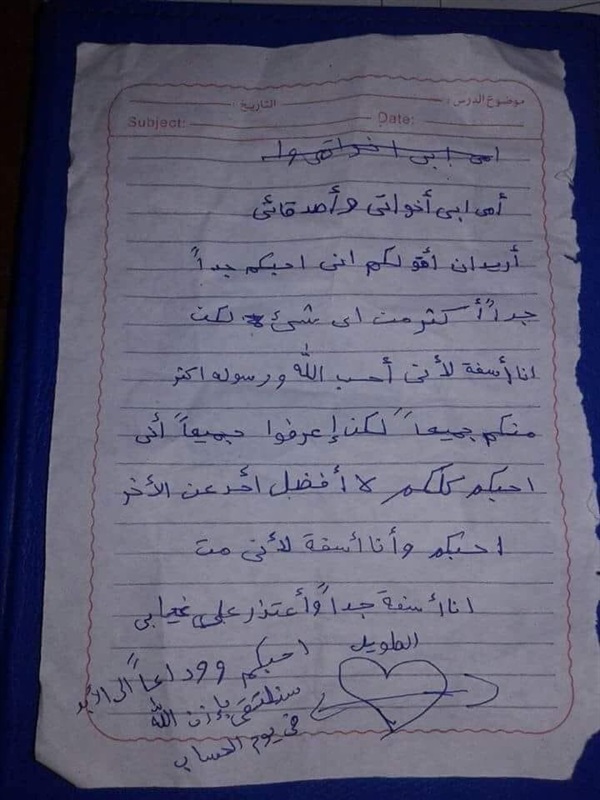 موضوع الدرس: التاريخ:
Subject: Date:
امى ابى اخواتى وا
أمى ابى أخواتى وأصدقائى
أريد ان أقولكم انى احبكم جداً
جداً أكثر من اى شئ لكن
انا أسفة لأنى أحب الله ورسوله اكثر
منكم جميعاً لكن إعرفوا جميعاً أنى
احبكم كلكم لا أفضل أحد عن الأخر
احبكم وأنا أسفة لأنى مت
انا أسفة جداً وأعتذر على غيابى
الطويل
احبكم ووداعاً الى الأبد
سنلتقى بإذن الله
فى يوم الحساب